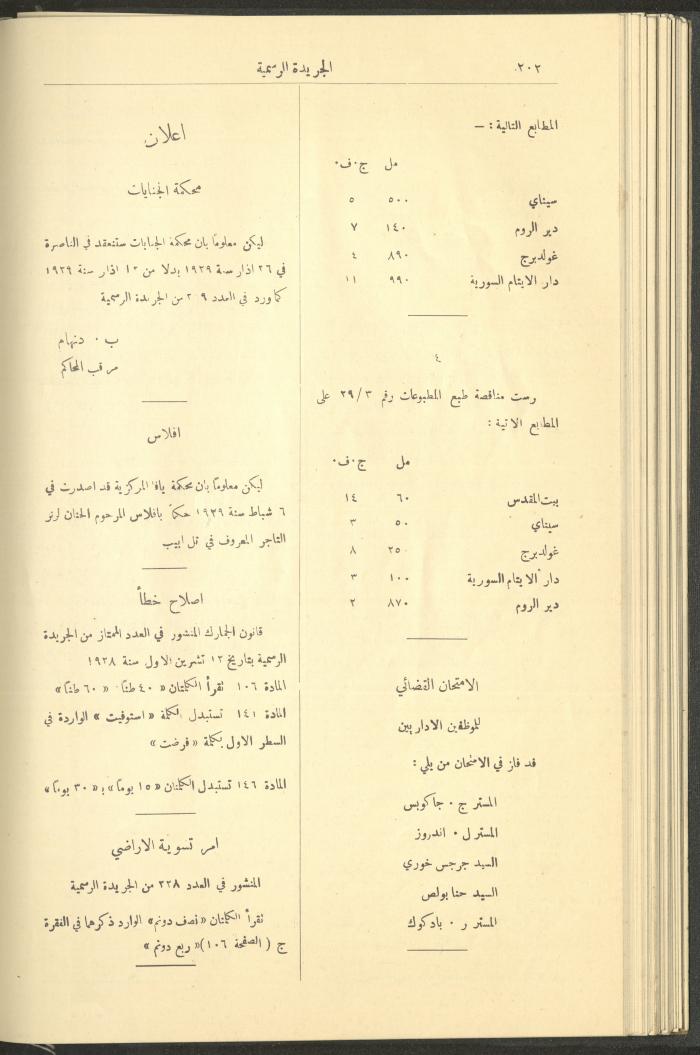 ٢٠٢
الجريدة الرسمية
المطابع التالية : —
مل ج.ف.
سيناي ٥٠٠ ٥
دير الروم ١٤٠ ٧
غولدبرج ٨٩٠ ٤
دار الايتام السورية ٩٩٠ ١١
٤
رست مناقصة طبع المطبوعات رقم ٢٩/٣ على
المطابع الاتية :
مل ج.ف.
بيت المقدس ٦٠ ١٤
سيناي ٥٠ ٣
غولدبرج ٢٥٠ ٨
دار الايتام السورية ١٠٠ ٣
دير الروم ٨٧٠ ٢
الامتحان القضائي
للموظفين الاداريين
قد فاز في الامتحان من يلي :
المستر ج . جاكوبس
المستر ل . اندروز
السيد جرجس خوري
السيد حنا بولص
المستر ر . بادكوك
اعلان
محكمة الجنايات
ليكن معلوماً بان محكمة الجنايات ستنعقد في الناصرة
في ٢٦ اذار سنة ١٩٢٩ بدلا من ١٢ اذار سنة ١٩٢٩
كما ورد في العدد من الجريدة الرسمية
ب . دنهام
مرقب المحاكم
افلاس
ليكن معلوماً بان محكمة يافا المركزية قد اصدرت في
٦ شباط سنة ١٩٢٩ حكماً بافلاس المرحوم الحنان لرنر
التاجر المعروف في تل ابيب
اصلاح خطأ
قانون الجمارك المنشور في العدد الممتاز من الجريدة
الرسمية بتاريخ ١٢ تشرين الاول سنة ١٩٢٨
المادة ١٠٦ تقرأ الكلمتان « ٤٠ طناً » « ٦٠ طناً »
المادة ١٤١ تستبدل الكلمة « استوفيت » الواردة في
السطر الاول بكلمة « فرضت »
المادة ١٤٦ تستبدل الكلمتان « ١٥ يوماً » بـ « ٣٠ يوماً »
امر تسوية الاراضي
المنشور في العدد ٢٢٨ من الجريدة الرسمية
تقرأ الكلمتان « نصف دونم » الوارد ذكرهما في الفقرة
ج ( الصفحة ١٠٦ ) « ربع دونم »